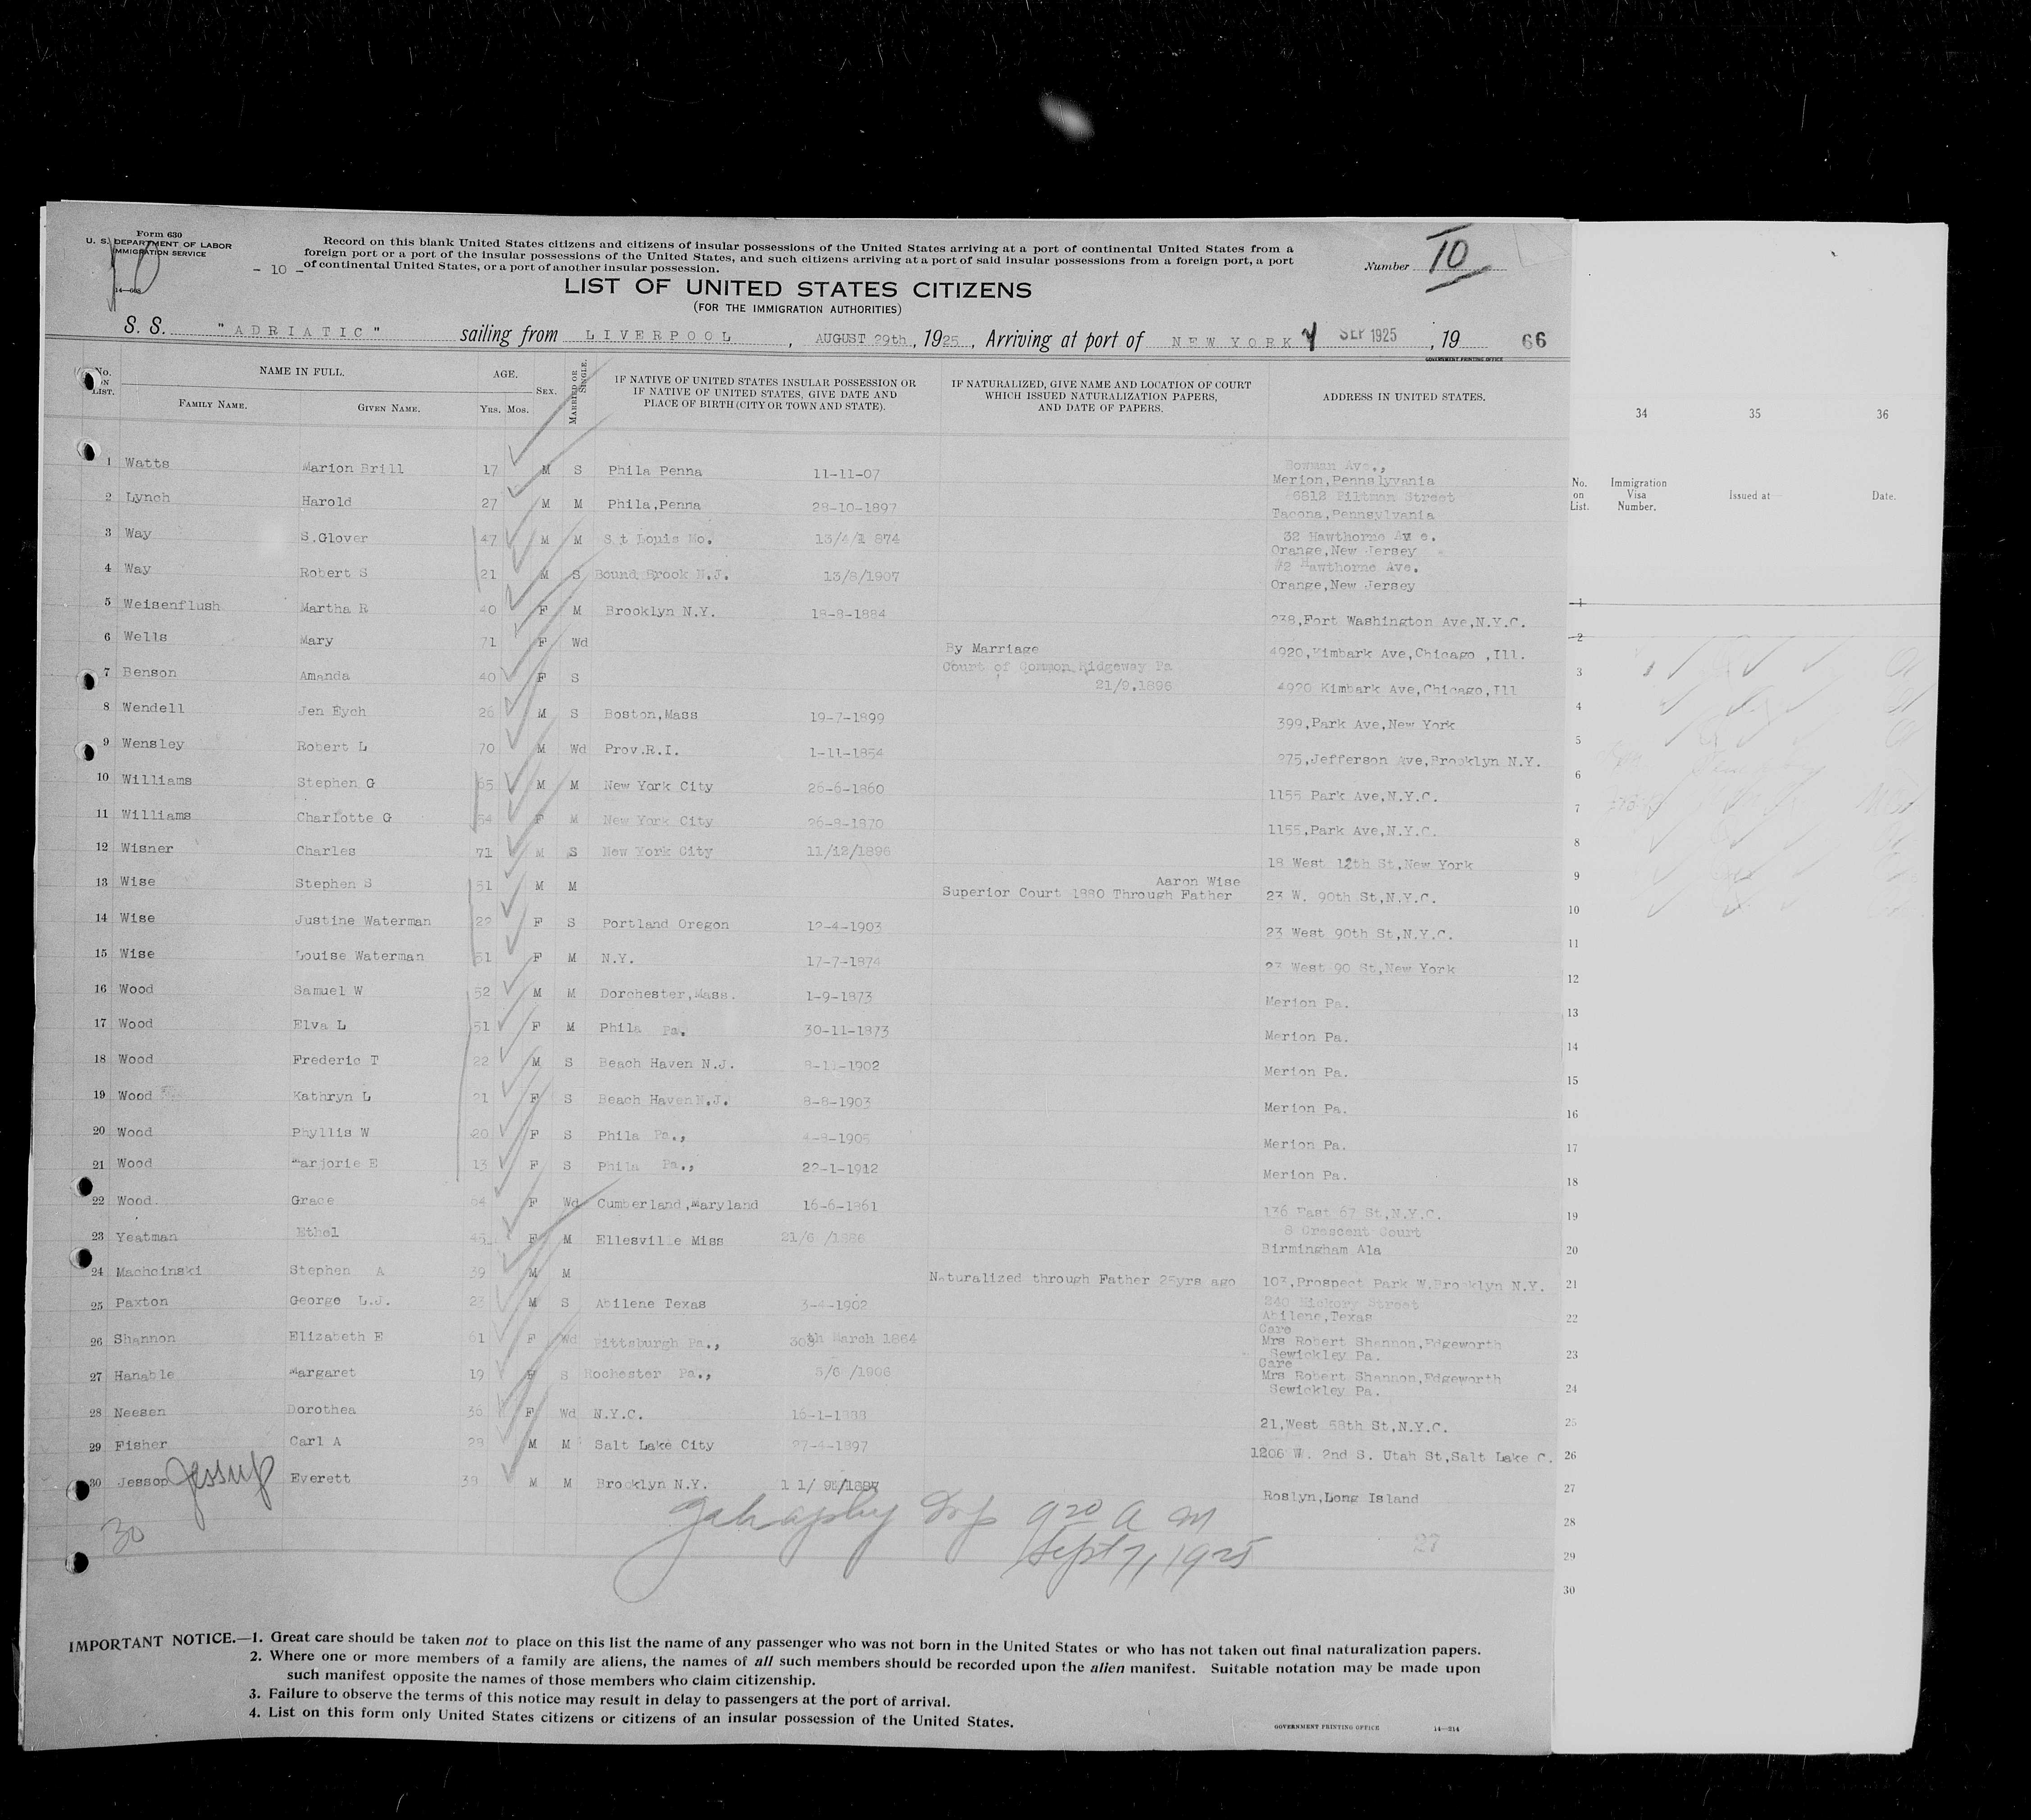 Form 630
U. S. DEPARTMENT OF LABOR
IMMIGRATION SERVICE
- 10 -
Record on this blank United States citizens and citizens of insular possessions of the United States arriving at a port of continental United States from a
foreign port or a port of the insular possessions of the United States, and such citizens arriving at a port of said insular possessions from a foreign port, a port
of continental United States, or a port of another insular possession.
Number 10
LIST OF UNITED STATES CITIZENS
(FOR THE IMMIGRATION AUTHORITIES)
S. S. "ADRIATIC" sailing from LIVERPOOL, AUGUST 29th, 1925, Arriving at port of NEW YORK 7 SEP 1925, 19 66
GOVERNMENT PRINTING OFFICE
No. ON LIST. NAME IN FULL. FAMILY NAME. GIVEN NAME. AGE. YRS. MOS. SEX. MARRIED OR SINGLE. IF NATIVE OF UNITED STATES INSULAR POSSESSION OR IF NATIVE OF UNITED STATES, GIVE DATE AND PLACE OF BIRTH (CITY OR TOWN AND STATE). IF NATURALIZED, GIVE NAME AND LOCATION OF COURT WHICH ISSUED NATURALIZATION PAPERS, AND DATE OF PAPERS. ADDRESS IN UNITED STATES.
1 Watts Marion Brill 17 M S Phila Penna 11-11-07 Bowman Ave., Merion,Pennslyvania
2 Lynch Harold 27 M M Phila,Penna 28-10-1897 6812 Street Tacona,Pennsylvania
3 Way S.Glover 47 M M S t Louis Mo. 13/4/1 874 32 Hawthorne Av e. Orange,New Jersey
4 Way Robert S 21 M S Bound Brook N.J. 13/8/1907 Hawthorne Ave. Orange,New Jersey
5 Weisenflush Martha R 40 F M Brooklyn N.Y. 18-8-1884 238,Fort Washington Ave,N.Y.C.
6 Wells Mary 71 F Wd By Marriage 4920,Kimbark Ave,Chicago ,Ill.
7 Benson Amanda 40 F S Court of Common Ridgeway Pa 21/9.1896 4920 Kimbark Ave,Chicago,Ill
8 Wendell Jen Eych 26 M S Boston,Mass 19-7-1899 399,Park Ave,New York
9 Wensley Robert L 70 M Wd Prov.R.I. 1-11-1854 275,Jefferson Ave,Brooklyn N.Y.
10 Williams Stephen G 65 M M New York City 26-6-1860 1155 Park Ave,N.Y.C.
11 Williams Charlotte G 54 F M New York City 26-8-1870 1155,Park Ave,N.Y.C.
12 Wisner Charles 71 M S New York City 11/12/1896 18 West 12th St,New York
13 Wise Stephen S 51 M M Aaron Wise Superior Court 1880 Through Father 23 W. 90th St,N.Y.C.
14 Wise Justine Waterman 22 F S Portland Oregon 12-4-1903 23 West 90th St,N.Y.C.
15 Wise Louise Waterman 51 F M N.Y. 17-7-1874 23 West 90 St,New York
16 Wood Samuel W 52 M M Dorchester,Mass. 1-9-1873 Merion Pa.
17 Wood Elva L 51 F M Phila Pa. 30-11-1873 Merion Pa.
18 Wood Frederic T 22 M S Beach Haven N.J. Merion Pa.
19 Wood Kathryn L 21 F S Beach Haven N.J. 8-8-1903 Merion Pa.
20 Wood Phyllis W 20 F S Phila Pa., Merion Pa.
21 Wood Marjorie E 13 F S Phila Pa., 22-1-1912 Merion Pa.
22 Wood Grace 64 F Wd Cumberland,Maryland 16-6-1861 136 East 67 St,N.Y.C.
23 Yeatman Ethel F M Ellesville Miss 21/6 /1886 8 Crescent Court Birmingham Ala
24 Machcinski Stephen A 39 M M Naturalized through Father 25yrs ago 103,Prospect Park W,Brooklyn N.Y.
25 Paxton George L.J. 23 M S Abilene Texas 3-4-1902 Hickory Street Abilene,Texas
26 Shannon Elizabeth E 61 F Wd Pittsburgh Pa., 30th March 1864 Care Mrs Robert Shannon,Edgeworth Sewickley Pa.
27 Hanable Margaret 19 F S Rochester Pa., 5/6 /1906 Care Mrs Robert Shannon,Edgeworth Sewickley Pa.
28 Neesen Dorothea 36 F Wd N.Y.C. 16-1-1888 21,West 58th St,N.Y.C.
29 Fisher Carl A 28 M M Salt Lake City 27-4-1897 1206 W. 2nd S. Utah St,Salt Lake C.
30 Jessop Jessup Everett 39 M M Brooklyn N.Y. Roslyn,Long Island
30
920 a m
Sept 7, 1925
27
IMPORTANT NOTICE.—1. Great care should be taken not to place on this list the name of any passenger who was not born in the United States or who has not taken out final naturalization papers.
2. Where one or more members of a family are aliens, the names of all such members should be recorded upon the alien manifest. Suitable notation may be made upon
such manifest opposite the names of those members who claim citizenship.
3. Failure to observe the terms of this notice may result in delay to passengers at the port of arrival.
4. List on this form only United States citizens or citizens of an insular possession of the United States.
GOVERNMENT PRINTING OFFICE 14—214
34 35 36
No. on List. Immigration Visa Number. Issued at Date.
1
2
3
4
5
6
7
8
9
10
11
12
13
14
15
16
17
18
19
20
21
22
23
24
25
26
27
28
29
30